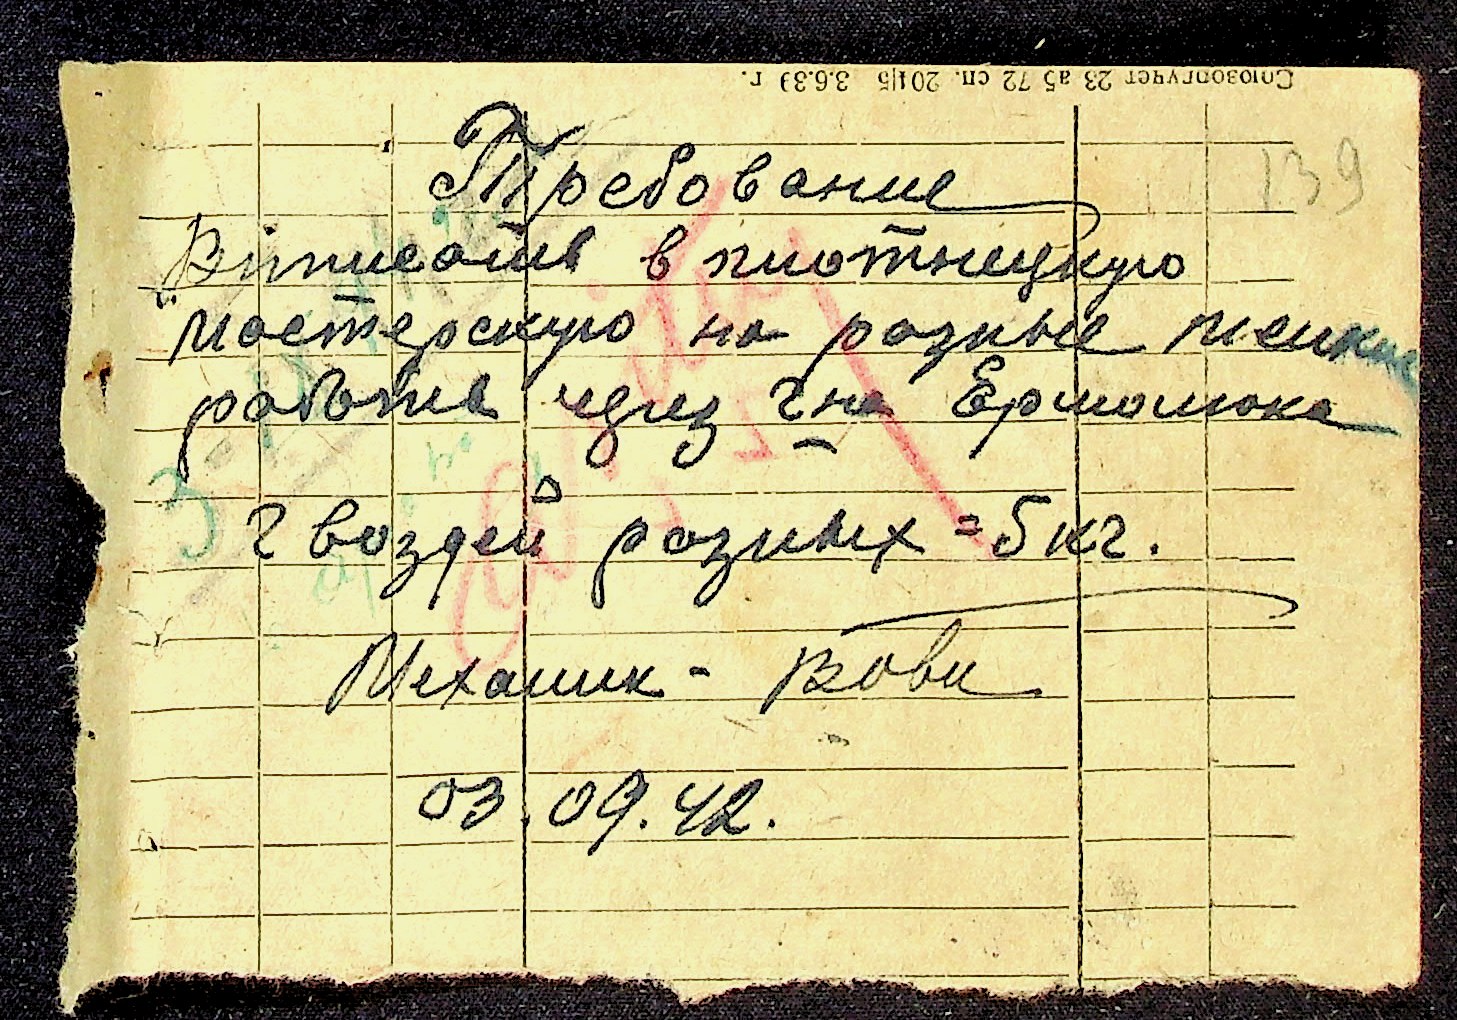 Союзоргучет 23 а5 72 сп. 20115 3.6.39 г.
139
Требование
Виписать в плотнецкую
мастерскую на разные мелкие
работы через г-на Ермолюка
гвоздей разных = 5 кг.
Механик - Вови
03.09.42.